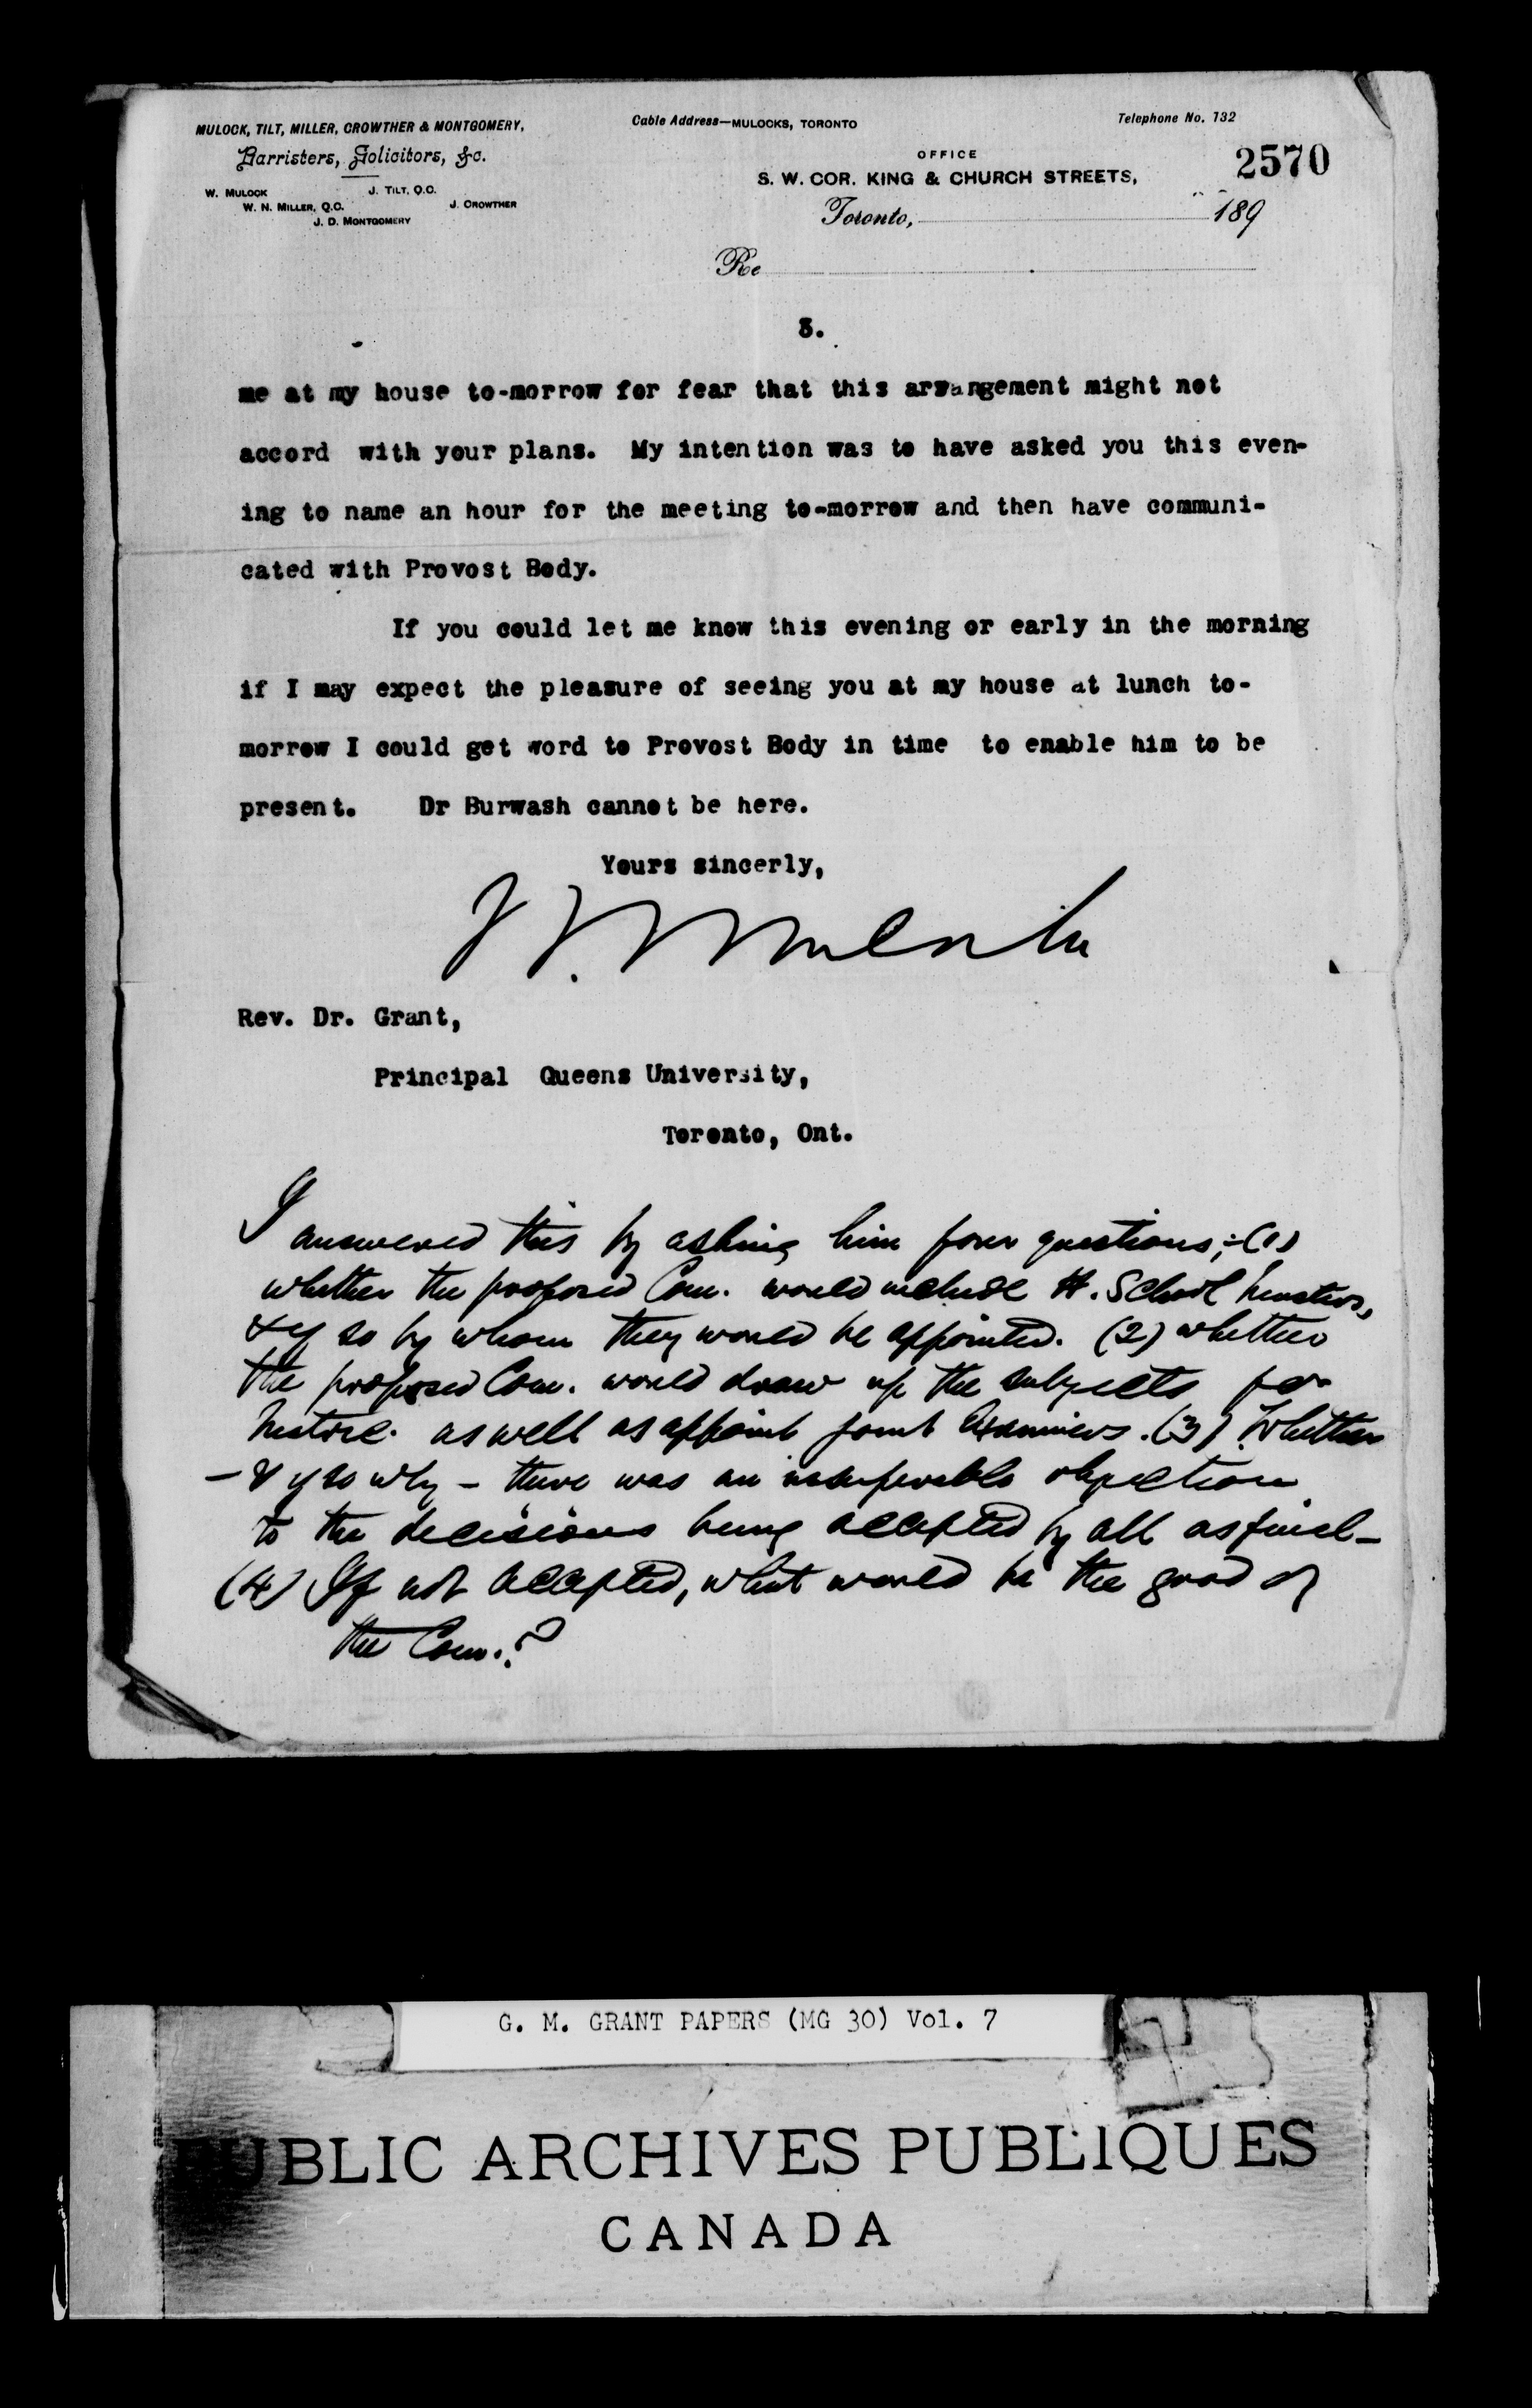 MULOCK, TILT, MILLER, CROWTHER & MONTGOMERY,
Barristers, Solicitors, &c.
W. MULOCK J. TILT, Q.C.
W. N. MILLER, Q.C. J. CROWTHER
J. D. MONTGOMERY
Cable Address—MULOCKS, TORONTO
Telephone No. 732
OFFICE
S. W. COR. KING & CHURCH STREETS,
2570
Toronto, 189
Re
3.
me at my house to-morrow for fear that this arrangement might not
accord with your plans. My intention was to have asked you this even-
ing to name an hour for the meeting to-morrow and then have communi-
cated with Provost Body.
If you could let me know this evening or early in the morning
if I may expect the pleasure of seeing you at my house at lunch to-
morrow I could get word to Provost Body in time to enable him to be
present. Dr Burwash cannot be here.
Yours sincerly,
W. Mulock
Rev. Dr. Grant,
Principal Queens University,
Toronto, Ont.
I
answered this by asking him four questions;-(1)
whether the proposed Com. would include H. School masters,
& if so by whom they would be appointed. (2) whether
the proposed Com. would draw up the subjects for
matric. as well as appoint joint Examiners. (3) Whether
- & if so why - there was an insuperable objection
to the decisions being accepted by all as final-
(4) If not accepted, what would be the good of
the Com.?
G. M. GRANT PAPERS (MG 30) Vol. 7
PUBLIC ARCHIVES PUBLIQUES
CANADA